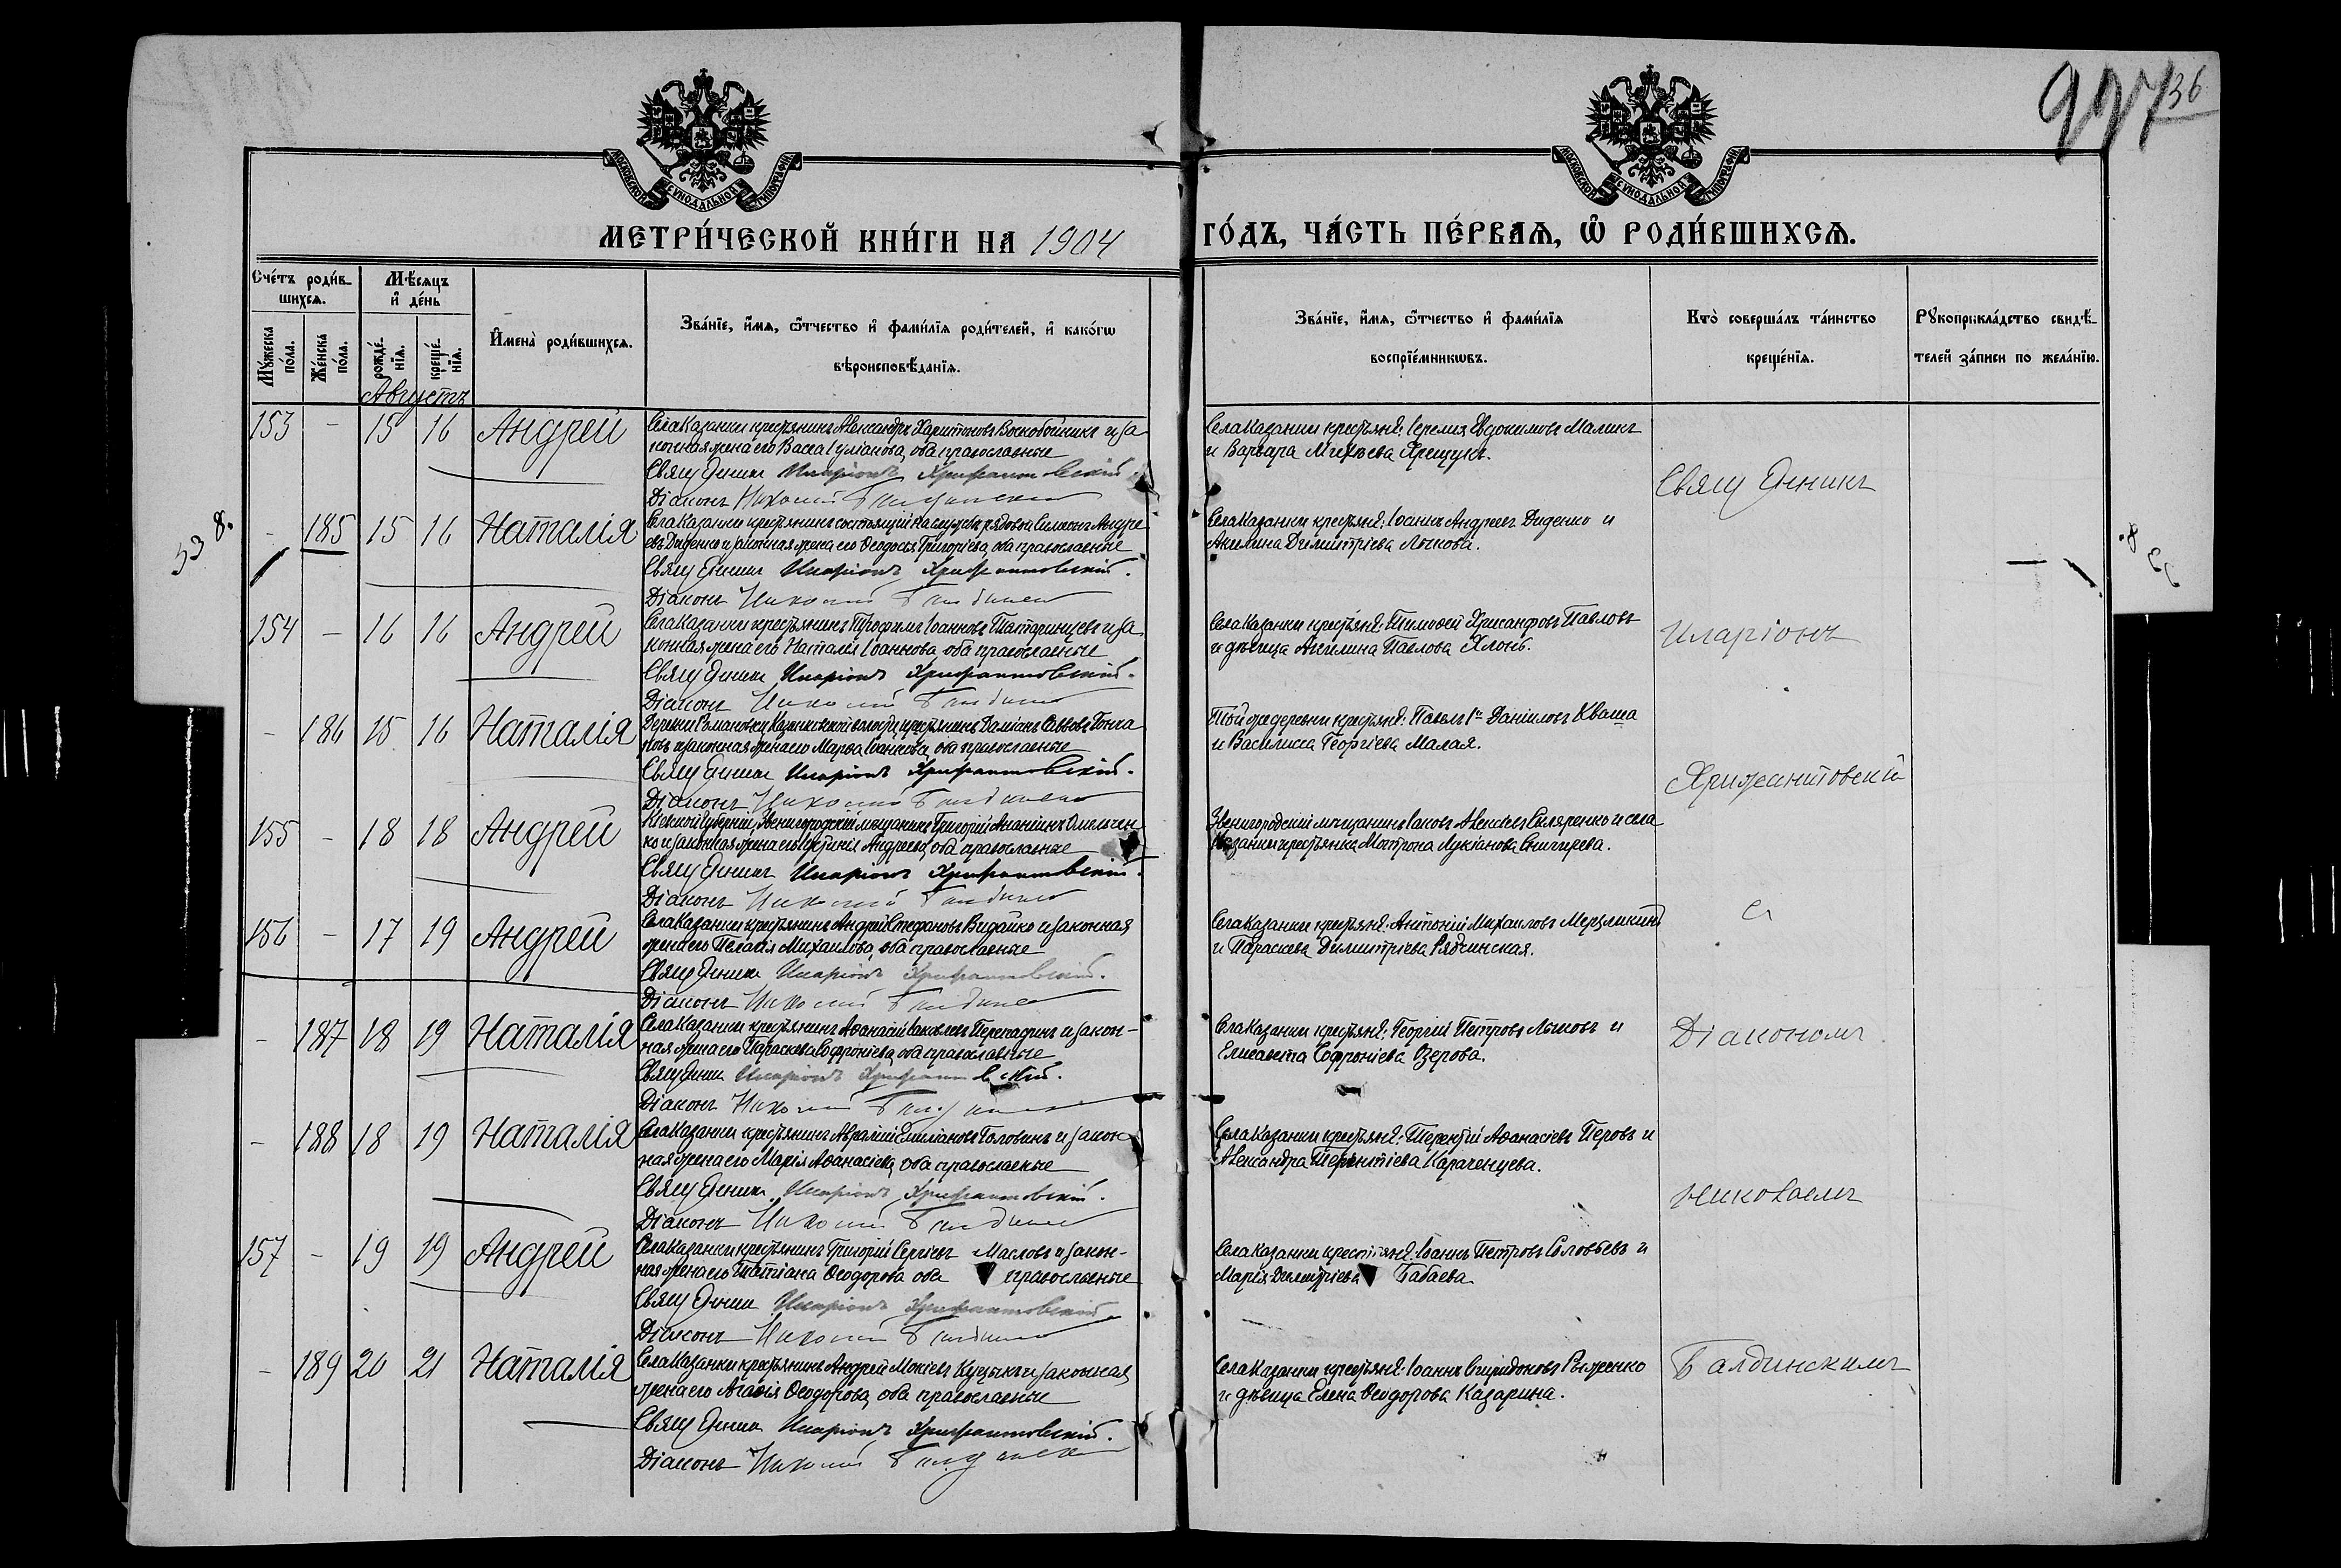 977 36
МОСКОВСКОЙ СѴНОДАЛЬНОЙ ТИПОГРАФІИ
МОСКОВСКОЙ СѴНОДАЛЬНОЙ ТИПОГРАФІИ
МЕТРИ́ЧЕСКОЙ КНИ́ГИ НА 1904 ГО́ДЪ, ЧА́СТЬ ПЕ́РВАѦ, Ѽ РОДИ́ВШИХСѦ.
Сче́тъ роди́в-
шихсѧ.
Мꙋ́жеска по́ла.
Же́нска по́ла.
Мѣ́сѧцъ
и҆ де́нь
рожде́-
нїѧ.
креще́-
нїѧ.
И҆мена̀ роди́вшихсѧ.
Зва́нїе, и҆́мѧ, ѻ҆́тчество и҆ фами́лїѧ роди́телей, и҆ како́гѡ
вѣроисповѣ́данїѧ.
Зва́нїе, и҆́мѧ, ѻ҆́тчество и҆ фами́лїѧ
воспрїе́мникѡвъ.
Кто̀ соверша́лъ та́инство
креще́нїѧ.
Рꙋкоприкла́дство свидѣ́-
телей за́писи по жела́нїю.
Августъ
153 - 15 16 Андрей
Села Казанки крестьянинъ Александръ Харитоновъ Воскобойникъ и за-
конная жена его Васса Іуліанова, оба православные
Священникъ Иларіонъ Хрисантовскій
Діаконъ Николай Балдинскій
Села Казанки крестьяне: Іеремія Евдокимовъ Малинъ
и Варвара Михѣева Хрещукъ.
- 185 15 16 Наталія
Села Казанки крестьянинъ состоящій на службѣ рядовой Симеонъ Андре-
евъ Диденко и законная жена его Ѳеодосія Григоріева, оба православные
Священникъ Иларіонъ Хрисантовскій.
Діаконъ Николай Балдинскій
Села Казанки крестьяне: Іоаннъ Андреевъ Диденко и
Акилина Димитріева Лыкова.
154 - 16 16 Андрей
Села Казанки крестьянинъ Трофимъ Іоанновъ Татаринцевъ и за-
конная жена его Наталія Іоаннова оба православные
Священникъ Иларіонъ Хрисантовскій.
Діаконъ Николай Балдинскій
Села Казанки крестьяне: Тимоѳей Хрисанфовъ Павловъ
и дѣвица Акилина Павлова Хлонь.
- 186 15 16 Наталія
Деревни Романовки Казанковской волости, крестьянинъ Даміанъ Саввовъ Гонча-
ровъ и законная жена его Марѳа Іоаннова, оба православные
Священникъ Иларіонъ Хрисантовскій.
Діаконъ Николай Балдинскій
Той же деревни крестьяне: Павелъ 1й Даніиловъ Кваша
и Василисса Георгіева Малая.
155 - 18 18 Андрей
Кіевской губерніи, Звенигородскій мѣщанинъ Григорій Ананіинъ Омельчен-
ко и законная жена его Іустинія Андреева, оба православные
Священникъ Иларіонъ Хрисантовскій.
Діаконъ Николай Балдинскій
Звенигородскій мѣщанинъ Іаковъ Алексіевъ Скляренко и села
Казанки крестьянка Матрона Лукіанова Снигирева.
156 - 17 19 Андрей
Села Казанки крестьянинъ Андрей Стефановъ Видайко и законная
жена его Пелагія Михаилова, оба православные
Священникъ Иларіонъ Хрисантовскій.
Діаконъ Николай Балдинскій
Села Казанки крестьяне: Антоній Михаиловъ Мерзликинъ
и Параскева Димитріева Рябчинская.
- 187 18 19 Наталія
Села Казанки крестьянинъ Аѳанасій Іаковлевъ Перепадинъ и закон-
ная жена его Параскева Софроніева, оба православные
Священникъ Иларіонъ Хрисантовскій.
Діаконъ Николай Балдинскій
Села Казанки крестьяне: Георгій Петровъ Лыковъ и
Елисавета Софроніева Озерова.
- 188 18 19 Наталія
Села Казанки крестьянинъ Авраамій Емиліановъ Головинъ и закон-
ная жена его Марія Аѳанасіева, оба православные
Священникъ Иларіонъ Хрисантовскій.
Діаконъ Николай Балдинскій
Села Казанки крестьяне: Терентій Аѳанасіевъ Перовъ и
Александра Терентіева Караченцева.
157 - 19 19 Андрей
Села Казанки крестьянинъ Григорій Сергіевъ Масловъ и закон-
ная жена его Татіана Ѳеодорова оба православные
Священникъ Иларіонъ Хрисантовскій
Діаконъ Николай Балдинскій
Села Казанки крестьяне: Іоаннъ Петровъ Соловьевъ и
Марія Димитріева Бабаева.
- 189 20 21 Наталія
Села Казанки крестьянинъ Андрей Мокіевъ Куцыкъ и законная
жена его Агаѳія Ѳеодорова, оба православные
Священникъ Иларіонъ Хрисантовскій.
Діаконъ Николай Балдинскій
Села Казанки крестьяне: Іоаннъ Спиридоновъ Рыженко
и дѣвица Елена Ѳеодорова Казарина.
Священникъ
Иларіонъ
Хрисантовскій
съ
Діакономъ
Николаемъ
Балдинскимъ
53 8.